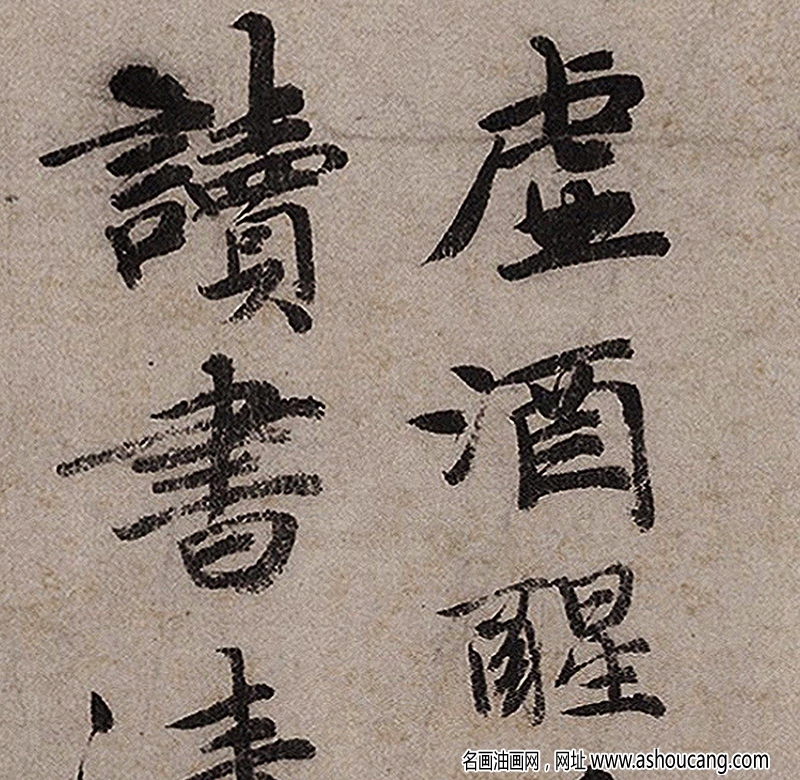 虚酒醒
讀書清
名画油画网，网址 www.ashoucang.com